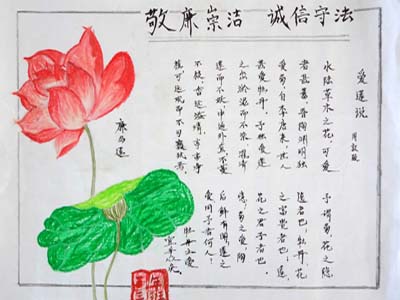 敬廉崇洁 诚信守法
爱莲说
周敦颐
水陆草木之花,可爱
者甚蕃,晋陶渊明独
爱菊,自李唐来,世人
甚爱牡丹,予独爱莲
之出淤泥而不染,濯清
涟而不妖,中通外直,不蔓
不枝,香远益清,亭亭净
植,可远观而不可亵玩者,
予谓菊,花之隐
逸者也,牡丹,花
之富贵者也;莲,
花之君子者也。
噫,菊之爱,陶
后鲜有闻,莲之
爱,同予者何人!
牡丹之爱
宜乎众矣。